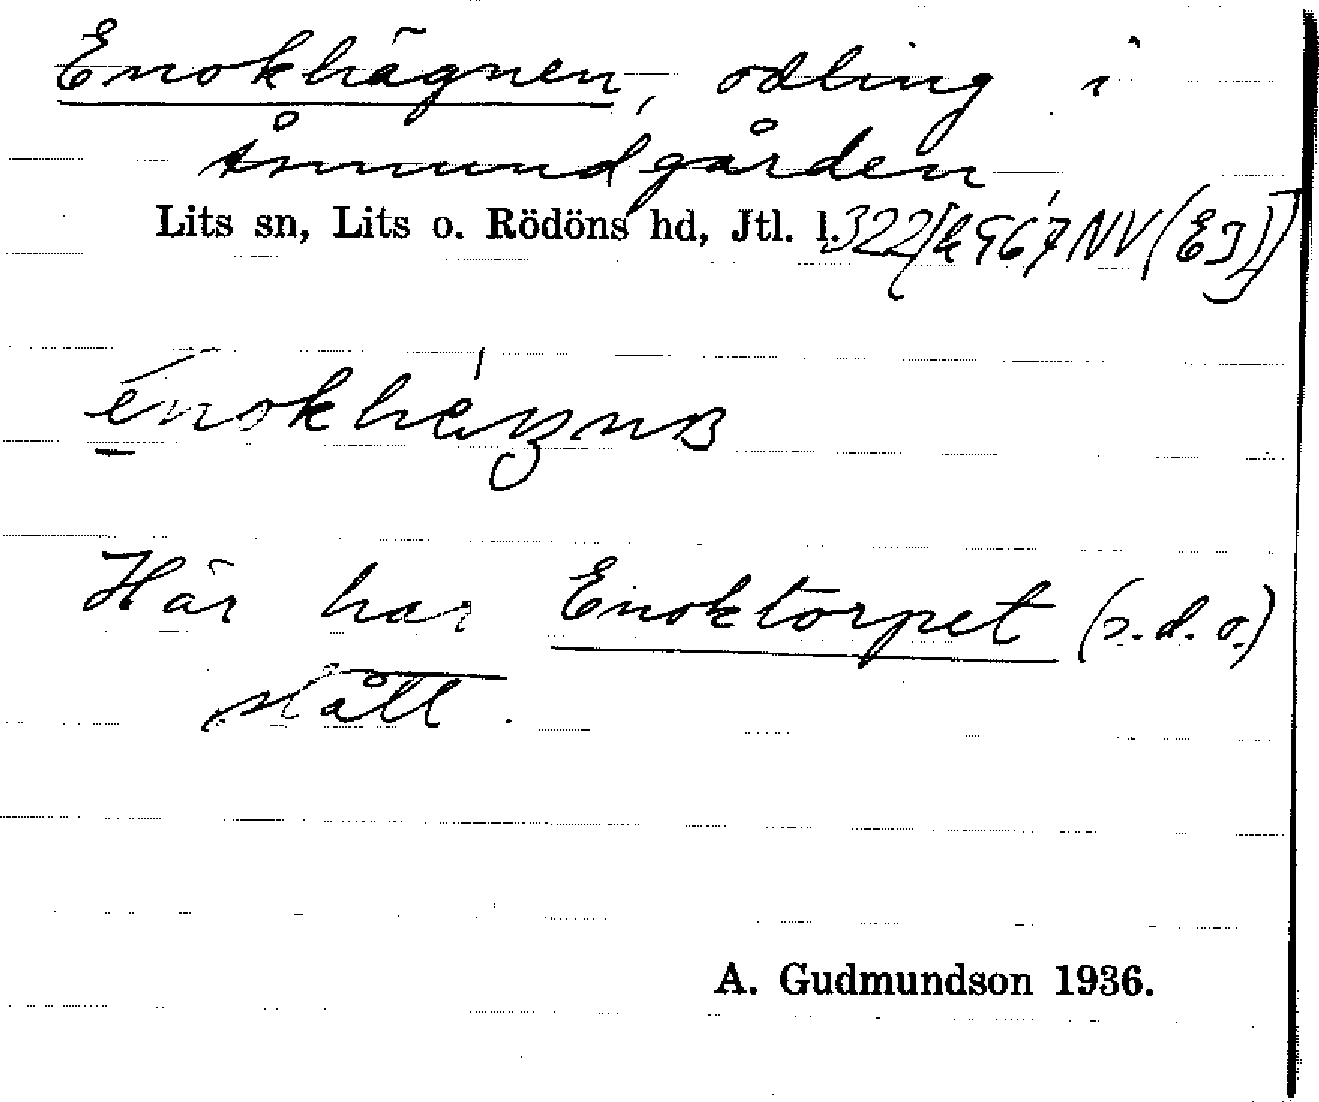 Enokhägnen, odling i
Åsmundgården
Lits sn, Lits o. Rödöns hd, Jtl. l.
Här har Enoktorpet (s.d.o.)
stått.
A. Gudmundson 1936.